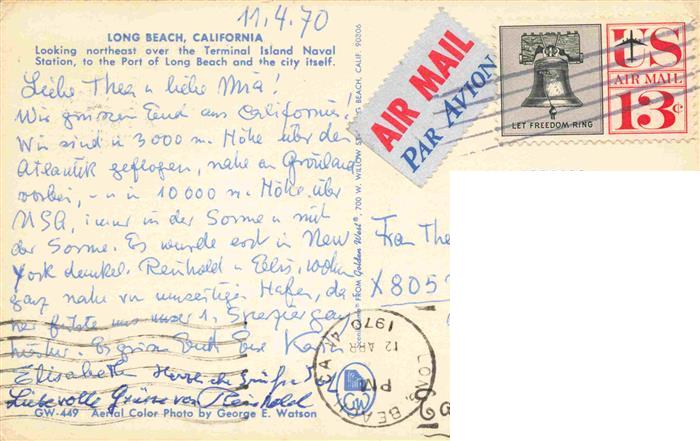 11.4.70
LONG BEACH, CALIFORNIA
Looking northeast over the Terminal Island Naval
Station, to the Port of Long Beach and the city itself.
Liebe Thea u liebe Mia!
Wir grüssen Euch aus Californien!
Wir sind in 3000 m. Höhe über den
Atlantik geflogen, nahe an Grönland
vorbei, - u in 10000 m. Höhe über
USA, immer in der Sonne u mit
der Sonne. Es wurde erst in New
York dunkel. Reinhold u Ellis, wohnen
ganz nahe vom umseitigen Hafen, da
her führte uns unser 1. Spaziergang
hierher. Es grüssen Euch Eure
Elisabeth Herzliche Grüße
Liebevolle Grüsse von Reinhold
GW-449 Aerial Color Photo by George E. Watson
FROM Golden West 700 W. WILLOW ST. LONG BEACH, CALIF. 90806
AIR MAIL
PAR AVION
LET FREEDOM RING
US
AIR MAIL
13c
Frau The
X8052
LONG BEACH, CA
PM
12 APR
1970
GW